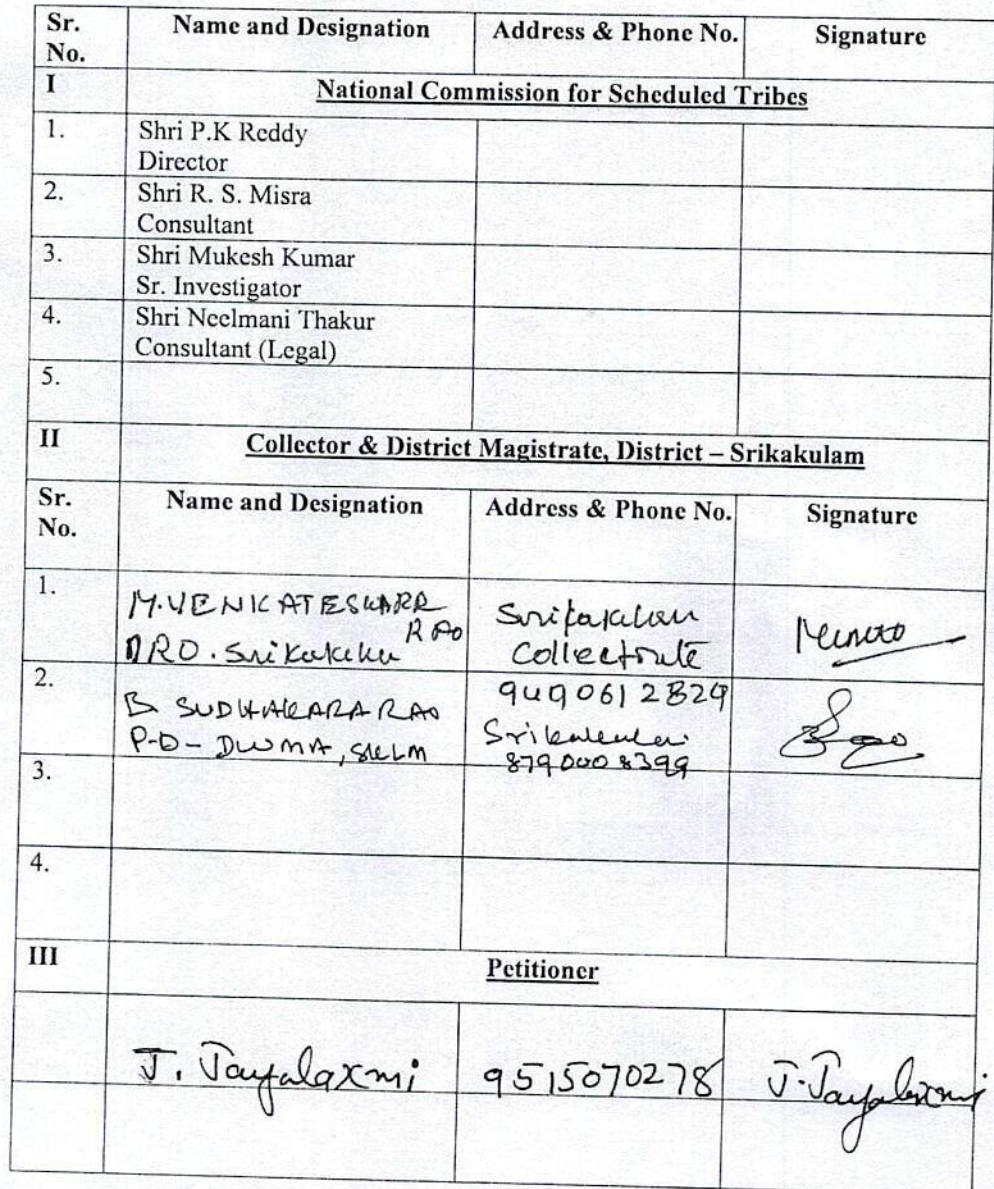 Sr. No. Name and Designation Address & Phone No. Signature
I National Commission for Scheduled Tribes
1. Shri P.K Reddy
Director
2. Shri R. S. Misra
Consultant
3. Shri Mukesh Kumar
Sr. Investigator
4. Shri Neelmani Thakur
Consultant (Legal)
5.
II Collector & District Magistrate, District – Srikakulam
Sr. No. Name and Designation Address & Phone No. Signature
1. M.VENKATESWARA
RAO
DRO. Srikakulam
Srikakulam
Collectorate
9490612829
2. B SUDHAKARA RAO
P.D - DWMA, SKLM
Srikakulam
8790008399
3.
4.
III Petitioner
J. Jayalaxmi 9515070278 J. Jayalaxmi